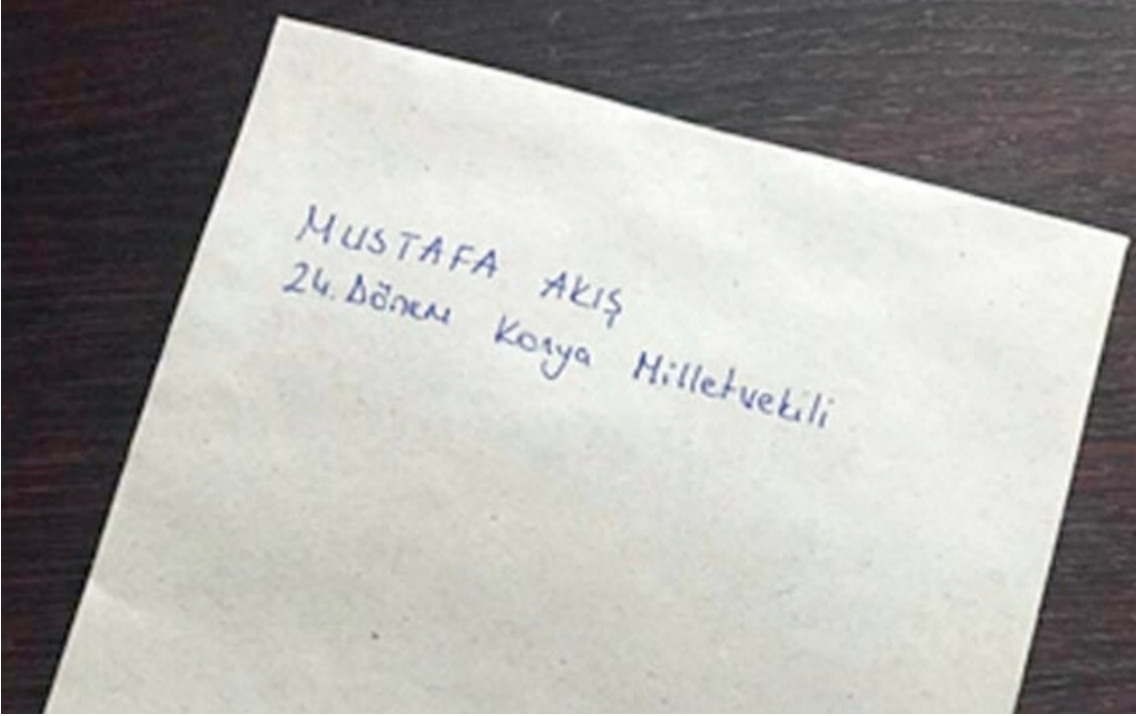 MUSTAFA AKIŞ
24. Dönem Konya Milletvekili